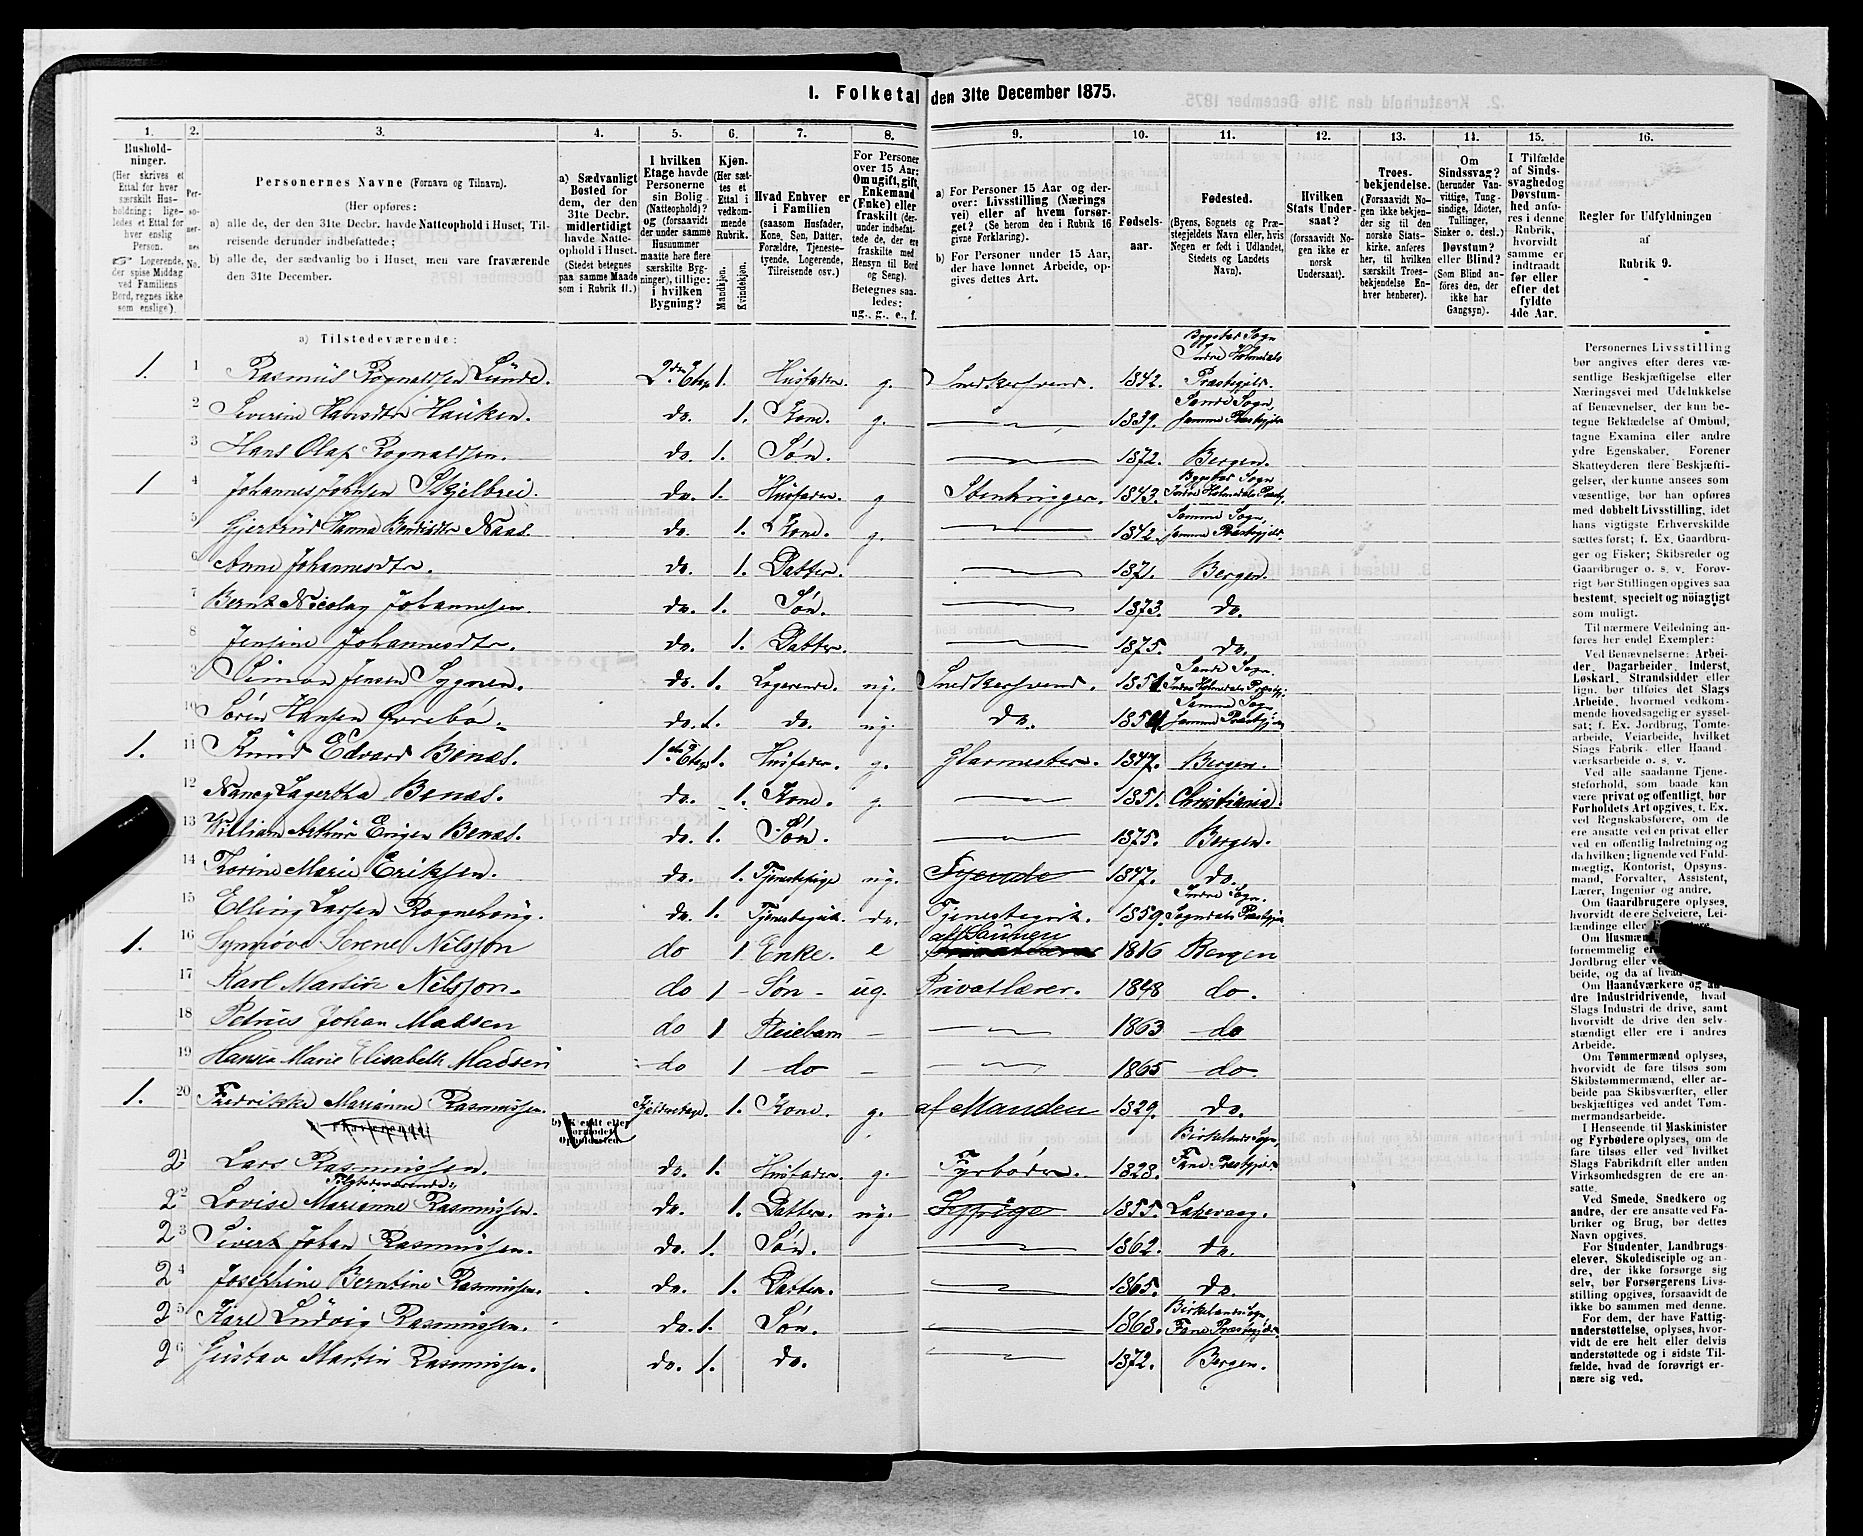 1. Folketal den 31te December 1875.
1. 2. 3. 4. 5. 6. 7. 8. 9. 10. 11. 12. 13. 14. 15. 16.
Hushold-
ninger.
(Her skrives et
Ettal for hver
særskilt Hus-
holdning; lige-
ledes et Ettal for
hver enslig
Person.
☞ Logerende,
der spise Middag
ved Familiens
Bord, regnes ikke
som enslige).
Per-
so-
ner-
nes
No.
Personernes Navne (Fornavn og Tilnavn).
(Her opføres:
a) alle de, der den 31te Decbr. havde Natteophold i Huset, Til-
reisende derunder indbefattede;
b) alle de, der sædvanlig bo i Huset, men vare fraværende
den 31te December.
a) Sædvanligt
Bosted for
dem, der den
31te Decbr.
midlertidigt
havde Natte-
ophold i Huset.
(Stedet betegnes
paa samme Maade
som i Rubrik 11.)
I hvilken
Etage havde
Personerne
sin Bolig
(Natteophold)?
og (forsaavidt
der under samme
Husnummer
maatte høre flere
særskilte Byg-
ninger), tillige:
i hvilken
Bygning?
Kjøn.
(Her sæt-
tes et
Ettal i
vedkom-
mende
Rubrik.
Mandkjøn.
Kvindekjøn.
Hvad Enhver er
i Familien
(saasom Husfader,
Kone, Søn, Datter,
Forældre, Tjeneste-
tyende, Logerende,
Tilreisende osv.)
For Personer
over 15 Aar:
Om ugift, gift,
Enkemand
(Enke) eller
fraskilt (der-
under indbefat-
tede de, der ere
fraskilte med
Hensyn til Bord
og Seng).
Betegnes saa-
ledes:
ug., g., e., f.
a) For Personer 15 Aar og der-
over: Livsstilling (Nærings
vei) eller af hvem forsør-
get? (Se herom den i Rubrik 16
givne Forklaring).
b) For Personer under 15 Aar,
der have lønnet Arbeide, op-
gives dettes Art.
Fødsels-
aar.
Fødested.
(Byens, Sognets og Præ-
stegjeldets Navn eller, hvis
Nogen er født i Udlandet,
Stedets og Landets
Navn).
Hvilken
Stats Under-
saat?
(forsaavidt No-
gen ikke er
norsk
Undersaat).
Troes-
bekjendelse.
(Forsaavidt No-
gen ikke bekjen-
der sig til den
norske Stats-
kirke, anføres
her, til hvilken
særskilt Troes-
bekjendelse En-
hver henhører).
Om
Sindssvag?
(herunder Van-
vittige, Tung-
sindige, Idioter,
Tullinger,
Sinker o. desl.)
Døvstum?
eller Blind?
(Som Blind an-
føres den, der
ikke har
Gangsyn).
I Tilfælde
af Sinds-
svaghed og
Døvstum-
hed anfø-
res i denne
Rubrik,
hvorvidt
samme er
indtraadt
før eller
efter det
fyldte
4de Aar.
Regler for Udfyldningen
af
Rubrik 9.
a) Tilstedeværende:
1. 1 Rasmus Rognaldsen Lunde. 2den Etage 1. Husfader. g. Snedkersvend. 1842. Bygstad Sogn Indre Holmedals Præstegjeld.
2 Severine Hansdtr Hauken. do. 1. Kone. g. 1839. Sande Sogn, samme Præstegjeld.
3 Hans Olaf Rognaldsen. do. 1. Søn. 1872. Bergen.
1 4 Johannes Johnsen Skjelbrei. do. 1. Husfader. g Stenhugger. 1843. Bygstad Sogn Indre Holmedals Præstgj.
5 Gjertrud Hanna Bendixdtr Naas. do. 1. Kone. g. 1842. Samme Sogn, samme Præstegjeld.
6 Anne Johannesdtr. do. 1. Datter. 1871. Bergen.
7 Bernt Nicolay Johannesen. do. 1. Søn. 1873. do.
8 Jensine Johannesdtr. do. 1. Datter. 1875. do.
9 Simon Jensen Sygnen. do. 1. Logerende. ug. Snedkersvend. 1851 Sande Sogn. Indre Holmedals Præstgj.
10 Søren Hansen Horrebø. do. 1. do. ug. do. Samme Sogn samme Præstegjeld
1. 11 Knud Edvard Benas. 1ste Etage 1. Husfader. g. Glarmester. 1847. Bergen.
12 Nancy Lagertha Benas. do. 1. Kone. g 1851. Christiania.
13 William Arthur Eugen Benas. do. 1. Søn. 1875. Bergen.
14 Karine Marie Eriksen. do. 1. Tjenestepige ug. Tyende 1847. do.
15 Elling Larsen Rognehaug. do. 1. Tjenestegut. do. Tjenestegut. 1859. Indre Sogn. Sogndals Præstgj.
1. 16 Synnøve Serene Nilsson do 1 Enke. e af Sønnen 1816 Bergen
17 Karl Martin Nilsson. do 1 Søn ug. Privatlærer. 1848 do.
18 Petrus Johan Madsen do 1 Pleiebarn 1863 do
19 Hansin Marie Elisabeth Madsen do 1 do 1865 do.
1. 20 Fredrikke Marianne Rasmussen. Kjælderetage. 1. Kone. g. af Manden 1829. do.
b) Kjendt eller
formodet
Opholdssted
21 Lars Rasmussen. do. 1. Husfader. g. Fyrbøder. 1828. Birkelands Sogn, Fane Præstegjeld
Tilstedeværende:
22 Lovise Marianne Rasmussen. do. 1. Datter. ug. Sypige 1855. Laksevaag.
23 Sivert Johan Rasmussen. do. 1. Søn. 1862. do.
24 Josefine Berntine Rasmussen. do. 1. Datter. 1865. do.
25 Karl Ludvig Rasmussen. do. 1. Søn 1868. Birkelands Sogn, Fane Præstegjeld.
26 Gustav Martin Rasmussen. do. 1. do. 1872. Bergen.
Personernes Livsstilling
bør angives efter deres væ-
sentlige Beskjæftigelse eller
Næringsvei med Udelukkelse
af Benævnelser, der kun be-
tegne Beklædelse af Ombud,
tagne Examina eller andre
ydre Egenskaber. Forener
Skatteyderen flere Beskjæfti-
gelser, der kunne ansees som
væsentlige, bør han opføres
med dobbelt Livsstilling, idet
hans vigtigste Erhvervskilde
sættes først; f. Ex. Gaardbru-
ger og Fisker; Skibsreder og
Gaardbruger o. s. v. Forøv-
rigt bør Stillingen opgives saa
bestemt, specielt og nøiagtigt
som muligt.
Til nærmere Veiledning an-
føres her endel Exempler:
Ved Benævnelserne: Arbei-
der, Dagarbeider, Inderst,
Løskarl, Strandsidder eller
lign. bør tilføies det Slags
Arbeide, hvormed vedkom-
mende hovedsagelig er syssel-
sat; f. Ex. Jordbrug, Tomte-
arbeide, Veiarbeide, hvilket
Slags Fabrik- eller Haand-
værksarbeide o. s. v.
Ved alle saadanne Tjene-
steforhold, som baade kan
være privat og offentligt, bør
Forholdets Art opgives, f. Ex.
ved Regnskabsførere, om de
ere ansatte ved en privat eller
ved en offentlig Indretning og
da hvilken; lignende ved Fuld-
mægtig, Kontorist, Opsyns-
mand, Forvalter, Assistent,
Lærer, Ingeniør og andre.
Om Gaardbrugere oplyses,
hvorvidt de ere Selveiere, Lei-
lændinge eller
Om
fornemmelig
Jordbrug eller
beide, og da af
Om Haandværkere og an-
dre Industridrivende, hvad
Slags Industri de drive, samt
hvorvidt de drive den selv-
stændigt eller ere i andres
Arbeide.
Om Tømmermænd oplyses,
hvorvidt de fare tilsøs som
Skibstømmermænd, eller ar-
beide paa Skibsværfter, eller
beskjæftiges ved andet Tøm-
mermandsarbeide.
I Henseende til Maskinister
og Fyrbødere oplyses, om de
fare tilsøs eller ved hvilket
Slags Fabrikdrift eller anden
Virksomhedsgren de ere an-
satte.
Ved Smede, Snedkere og
andre, der ere ansatte ved Fa-
briker og Brug, bør dettes
Navn opgives.
For Studenter, Landbrugs-
elever, Skoledisciple og an-
dre, der ikke forsørge sig
selv, bør Forsørgerens Livs-
stilling opgives, forsaavidt de
ikke bo sammen med denne.
For dem, der have Fattig-
understøttelse, oplyses, hvor-
vidt de ere helt eller delvis
understøttede og i sidste Til-
fælde, hvad de forøvrigt er-
nære sig ved.